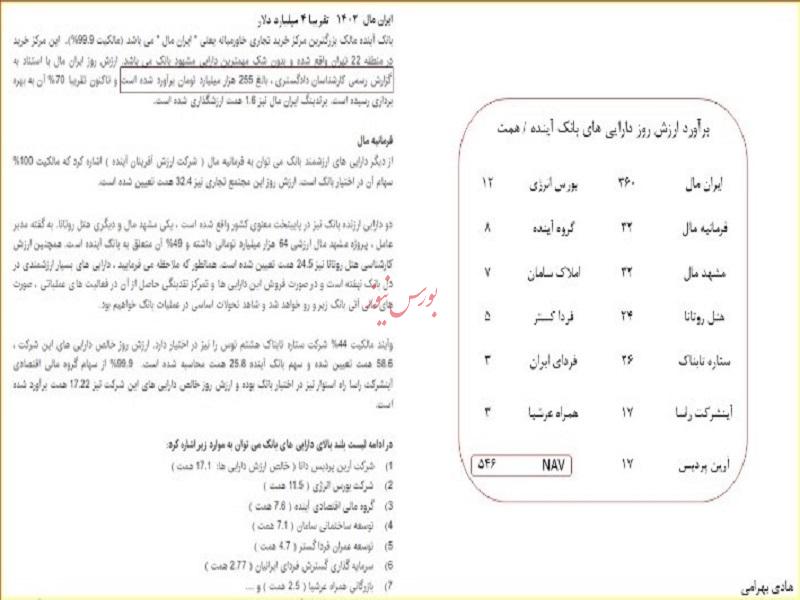 ایران مال ۱۴۰۳ تقریبا ۴ میلیارد دلار
بانک آینده مالک بزرگترین مرکز خرید تجاری خاورمیانه یعنی " ایران مال " می باشد (مالکیت 99.9%). این مرکز خرید
در منطقه 22 تهران واقع شده و بدون شک مهمترین دارایی مشهود بانک می باشد. ارزش روز ایران مال با استناد به
گزارش رسمی کارشناسان دادگستری ، بالغ 255 هزار میلیارد تومان برآورد شده است و تاکنون تقریبا 70% آن به بهره
برداری رسیده است. برندینگ ایران مال نیز 1.6 همت ارزشگذاری شده است.
فرمانیه مال
از دیگر دارایی های ارزشمند بانک می توان به فرمانیه مال ( شرکت ارزش آفرینان آینده ) اشاره کرد که مالکیت 100%
سهام آن در اختیار بانک است. ارزش روز این مجتمع تجاری نیز 32.4 همت تعیین شده است.
دو دارایی ارزنده بانک نیز در پایتخت معنوی کشور واقع شده است ، یکی مشهد مال و دیگری هتل روتانا. به گفته مدیر
عامل ، پروژه مشهد مال ارزشی 64 هزار میلیارد تومانی داشته و 49% آن متعلق به بانک آینده است. همچنین ارزش
کارشناسی هتل روتانا نیز 24.5 همت تعیین شده است. همانطور که ملاحظه می فرمایید ، دارایی های بسیار ارزشمندی در
دل بانک نهفته است و در صورت فروش این دارایی ها و تمرکز نقدینگی حاصل از آن در فعالیت های عملیاتی ، صورت
های مالی آتی بانک زیر و رو خواهد شد و شاهد تحولات اساسی در عملیات بانک خواهیم بود.
وآیند مالکیت 44% شرکت ستاره تابناک هشتم توس را نیز در اختیار دارد. ارزش روز خالص دارایی های این شرکت ،
58.6 همت تعیین شده و سهم بانک آینده 25.8 همت محاسبه شده است. 99.9% از سهام گروه مالی اقتصادی
آینشرکت راسا راه استوار نیز در اختیار بانک بوده و ارزش روز خالص دارایی های این شرکت نیز 17.22 همت برآورد شده
است.
در ادامه لیست بلند بالای دارایی های بانک می توان به موارد زیر اشاره کرد:
1) شرکت آرین پردیس دانا ( خالص ارزش دارایی ها: 17.1 همت )
2) شرکت بورس انرژی ( 11.5 همت )
3) گروه مالی اقتصادی آینده ( 7.6 همت )
4) توسعه ساختمانی سامان ( 7.1 همت )
5) توسعه عمران فردا گستر ( 4.7 همت )
6) سرمایه گذاری گسترش فردای ایرانیان ( 2.77 همت )
7) بازرگانی همراه عرشیا ( 2.5 همت ) و ....
بورس نیوز
برآورد ارزش روز دارایی های بانک آینده / همت
ایران مال ۳۶۰ بورس انرژی ۱۲
فرمانیه مال ۳۲ گروه آینده ۸
مشهد مال ۳۲ املاک سامان ۷
هتل روتانا ۲۴ فردا گستر ۵
ستاره تابناک ۲۶ فردای ایران ۳
آینشرکت راسا ۱۷ همراه عرشیا ۳
آرین پردیس ۱۷ NAV ۵۴۶
هادی بهرامی